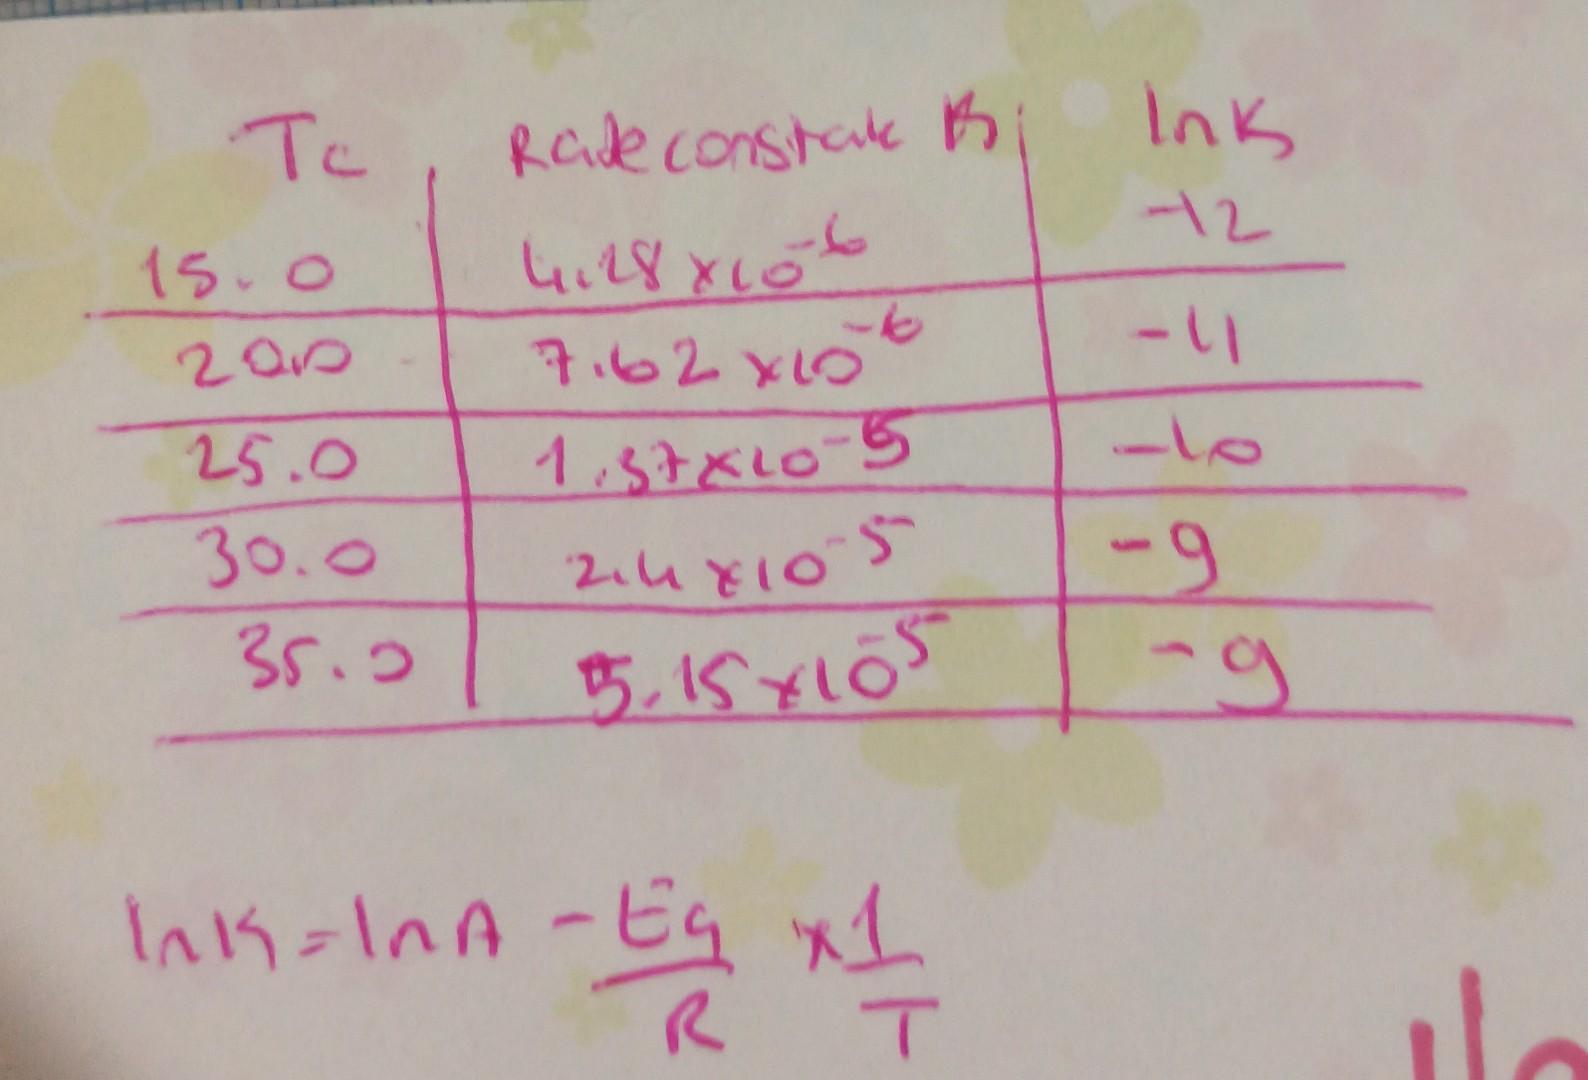 Tc Rate constant K lnK
15.0 4.18 x10^-6 -12
20.0 7.62 x10^-6 -11
25.0 1.37x10^-5 -10
30.0 2.4 x10^-5 -9
35.0 5.15x10^-5 -9
lnK=lnA -Ea/R x 1/T